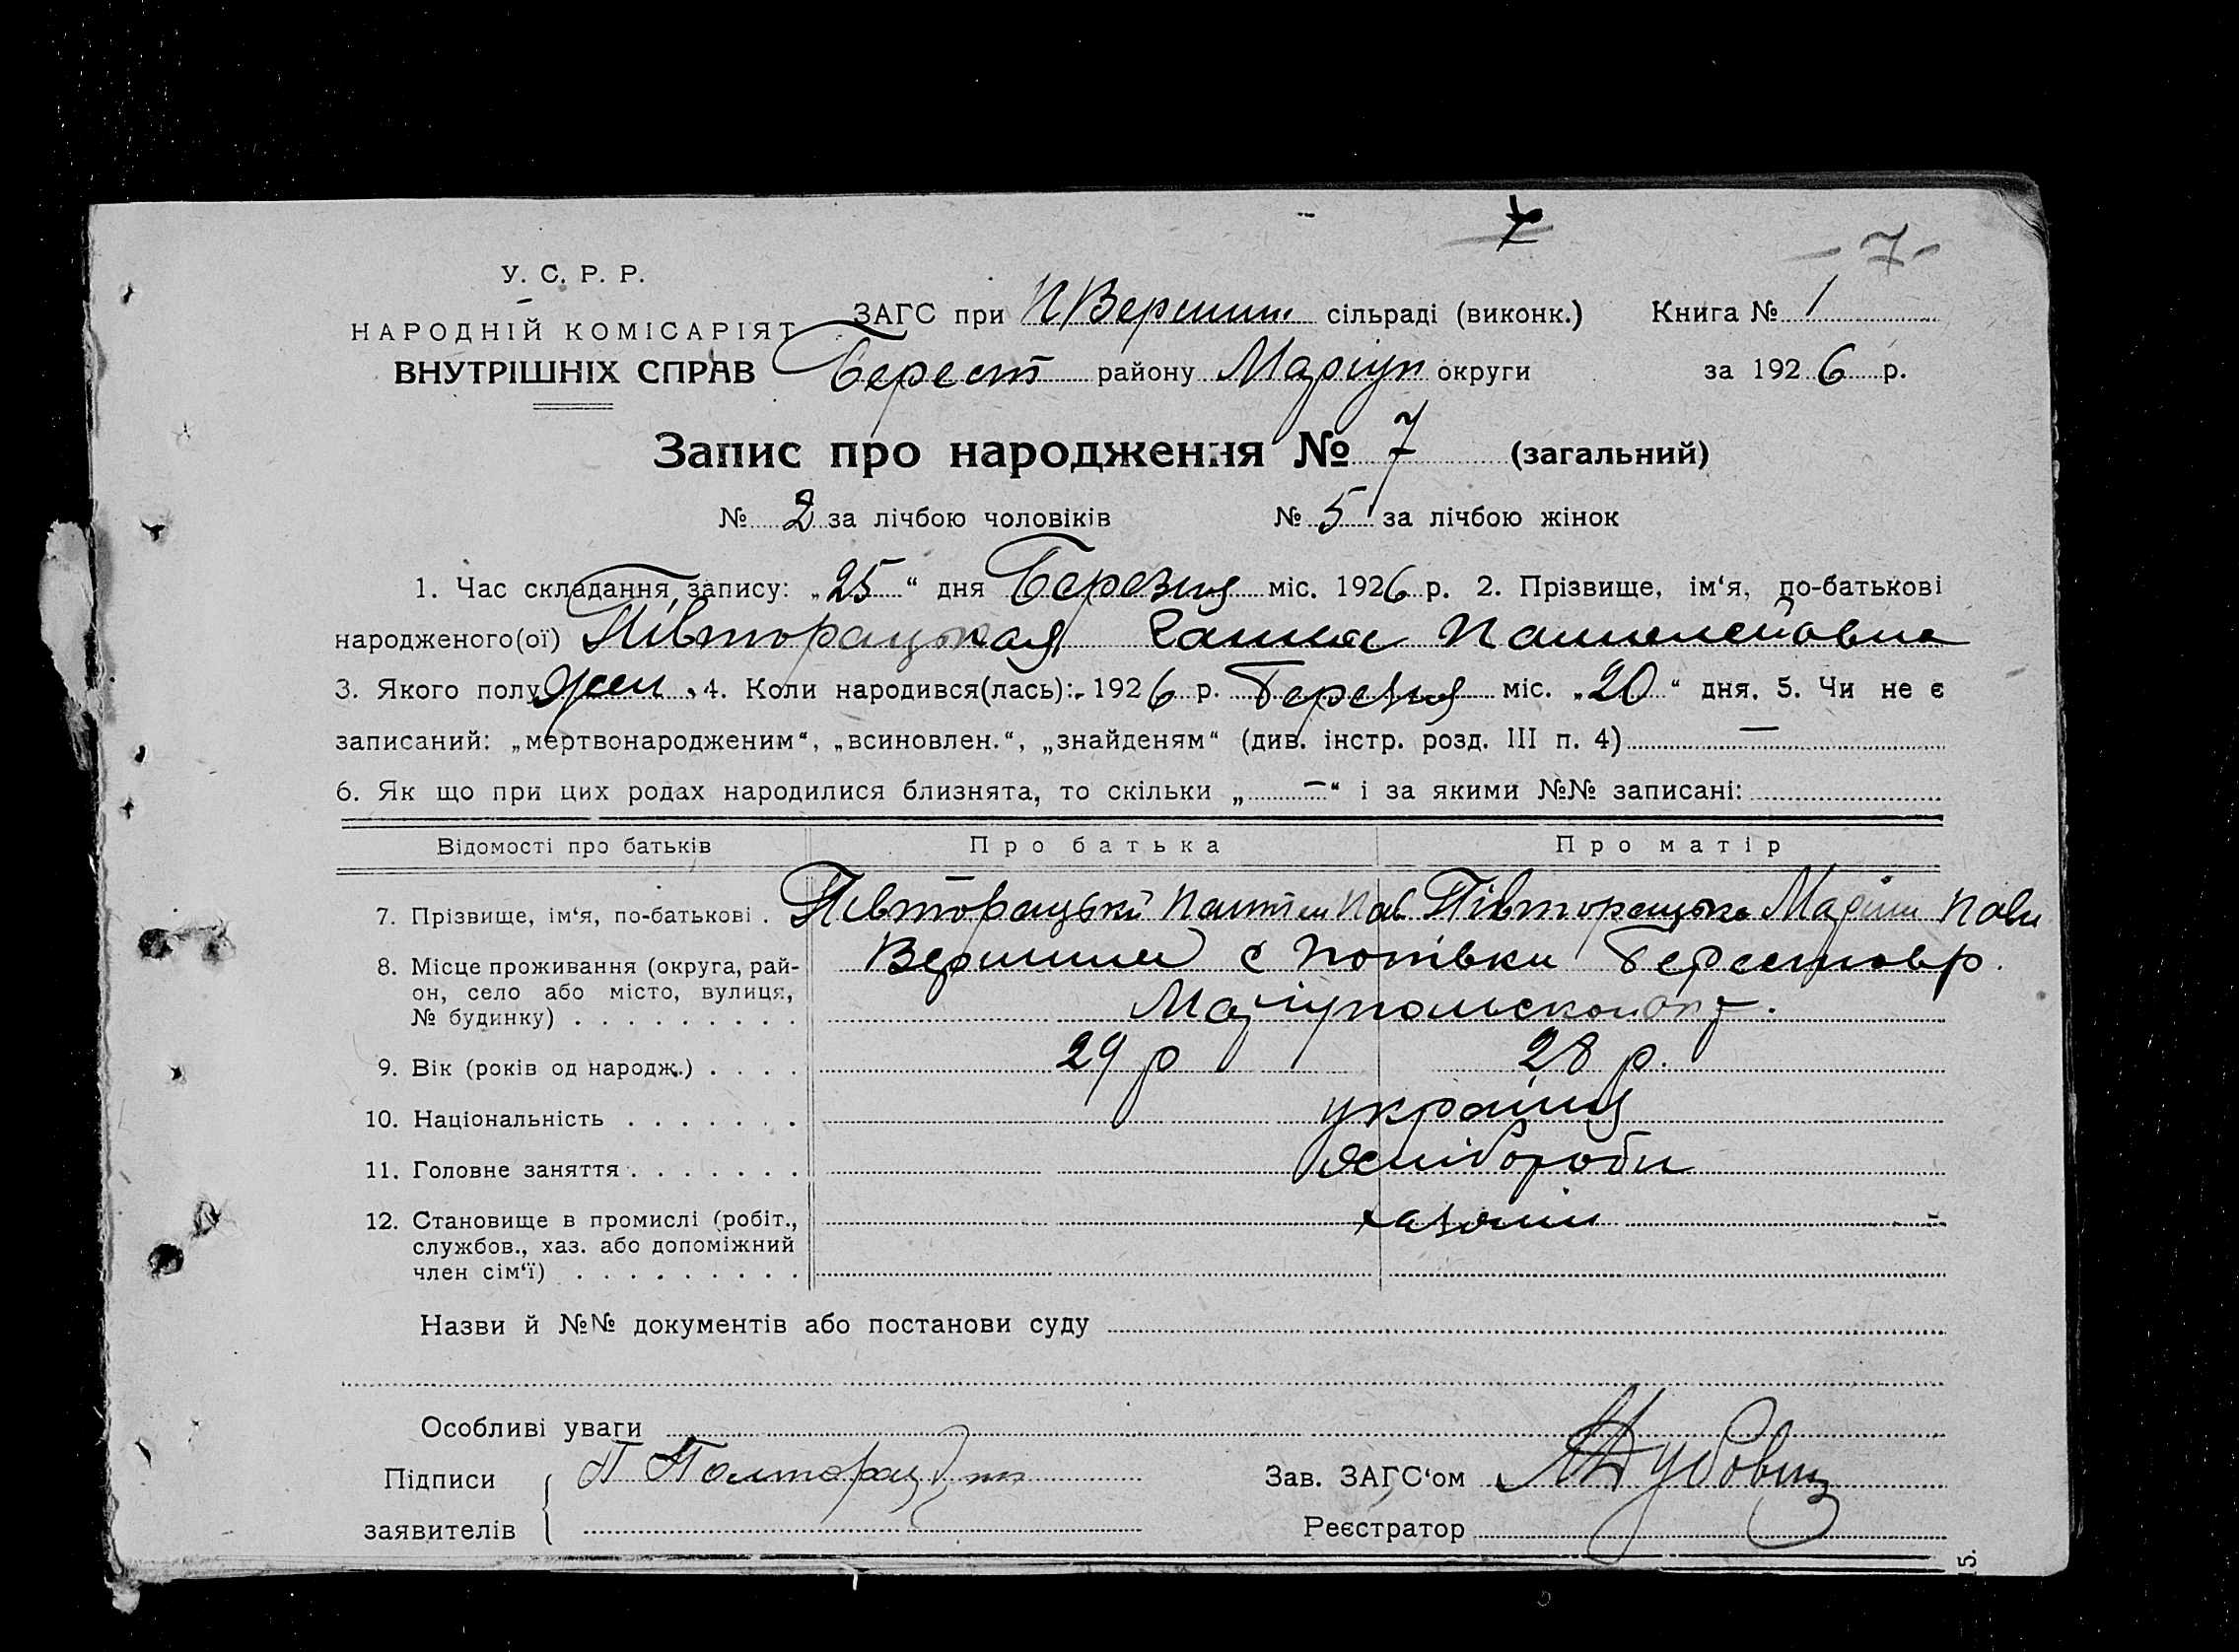 7
- 7 -
У. С. Р. Р.
НАРОДНІЙ КОМІСАРІЯТ
ВНУТРІШНІХ СПРАВ
ЗАГС при сільраді (виконк.) Книга № 1
Берест району Маріуп округи за 1926 р.
Запис про народження № 7 (загальний)
№ 2 за лічбою чоловіків № 5 за лічбою жінок
1. Час складання запису: „25“ дня Березня міс. 1926 р. 2. Прізвище, ім‘я, по-батькові
народженого(ої) Півторацькая Ганна
3. Якого полу жен. 4. Коли народився(лась): 1926 р. Березня міс. „20“ дня. 5. Чи не є
записаний: „мертвонародженим“, „всиновлен.“, „знайденям“ (див. інстр. розд. III п. 4) —
6. Як що при цих родах народилися близнята, то скільки „—“ і за якими №№ записані:
Відомості про батьків Про батька Про матір
7. Прізвище, ім‘я, по-батькові . Півторацький Пав Півторацька
8. Місце проживання (округа, рай-
он, село або місто, вулиця,
№ будинку) . . . . . . . . .
9. Вік (років од народж.) . . . . 29 р 28 р.
10. Національність . . . . . . . україн
11. Головне заняття . . . . . . .
12. Становище в промислі (робіт.,
службов., хаз. або допоміжний
член сім‘ї) . . . . . . . . .
Назви й №№ документів або постанови суду
Особливі уваги
Підписи П Зав. ЗАГС‘ом
заявителів Реєстратор
5.